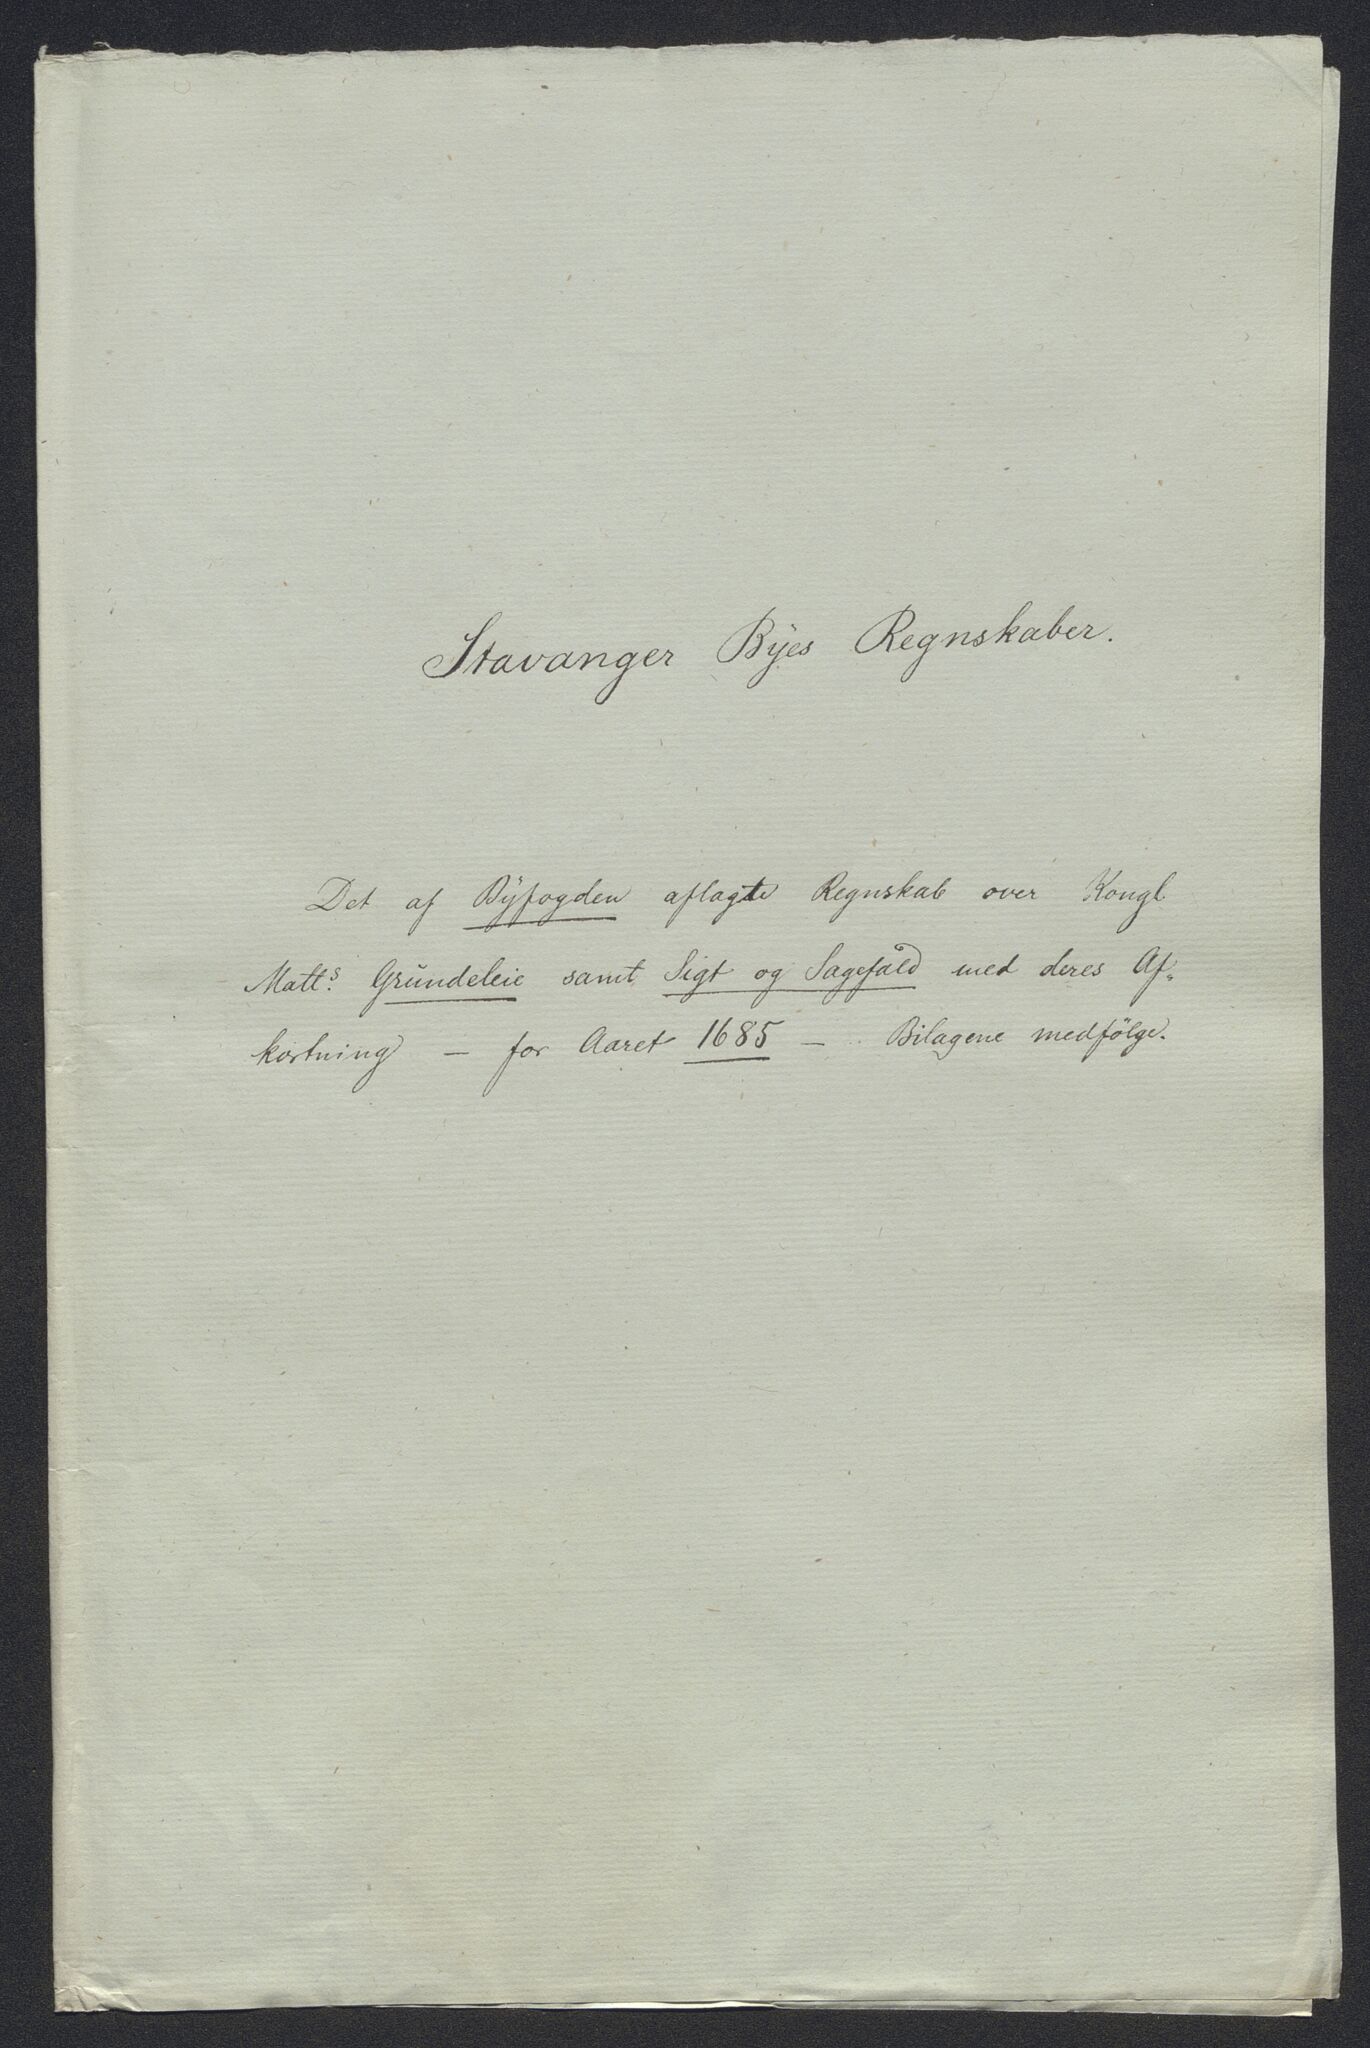 Stavanger Bÿes Regnskaber.
Det af Bÿfogden aflagte Regnskab over Kongl
Matts. Grŭndeleie samt Sigt og Sagefald med deres Af=
kortning – for Aaret 1685 – Bilagene medfölge.